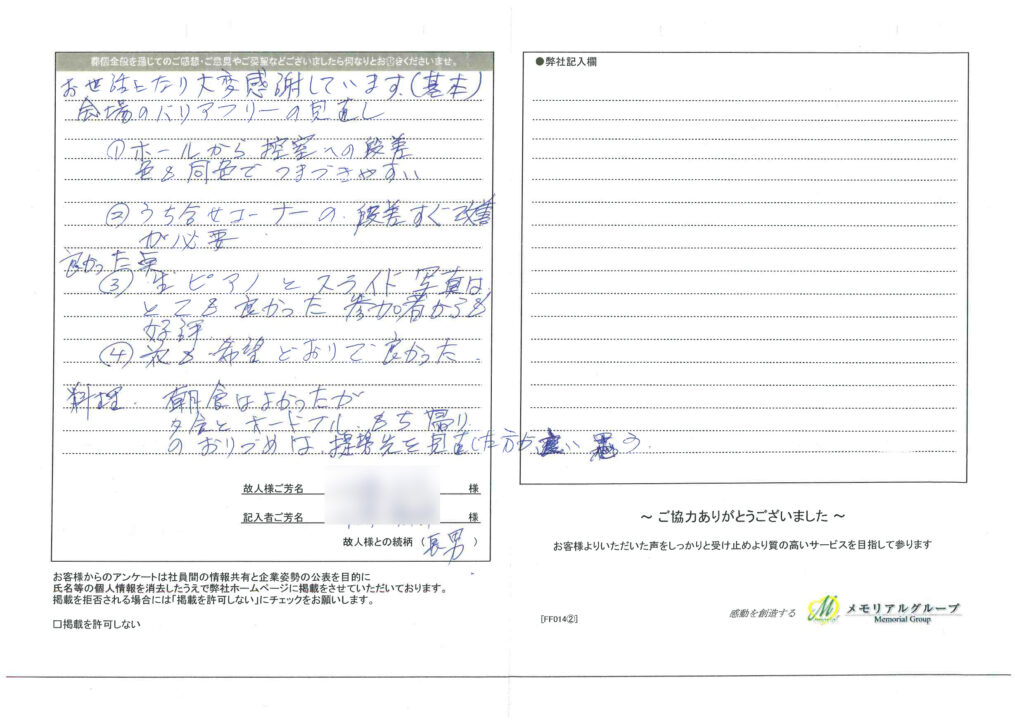 葬儀全般を通じてのご感想・ご意見やご要望などございましたら何なりとお聞かせくださいませ。
お世話になり大変感謝しています。(基本)
会場のバリアフリーの見直し
①ホールから控室への段差
色も同色でつまづきやすい
②うち合せコーナーの、段差すぐ改善
が必要
良かった点
③生ピアノとスライド写真は
とても良かった 参加者からも
好評
④花も希望どおりで良かった
料理. 朝食はよかったが
夕食とオードブル、もち帰り
のおりづめは、提携先を見直した方が良い 思う.
故人様ご芳名 様
記入者ご芳名 様
故人様との続柄(長男)
お客様からのアンケートは社員間の情報共有と企業姿勢の公表を目的に
氏名等の個人情報を消去したうえで弊社ホームページに掲載をさせていただいております。
掲載を拒否される場合には「掲載を許可しない」にチェックをお願いします。
□掲載を許可しない
●弊社記入欄
～ ご協力ありがとうございました ～
お客様よりいただいた声をしっかりと受け止めより質の高いサービスを目指して参ります
[FF014②]
感動を創造する メモリアルグループ
Memorial Group